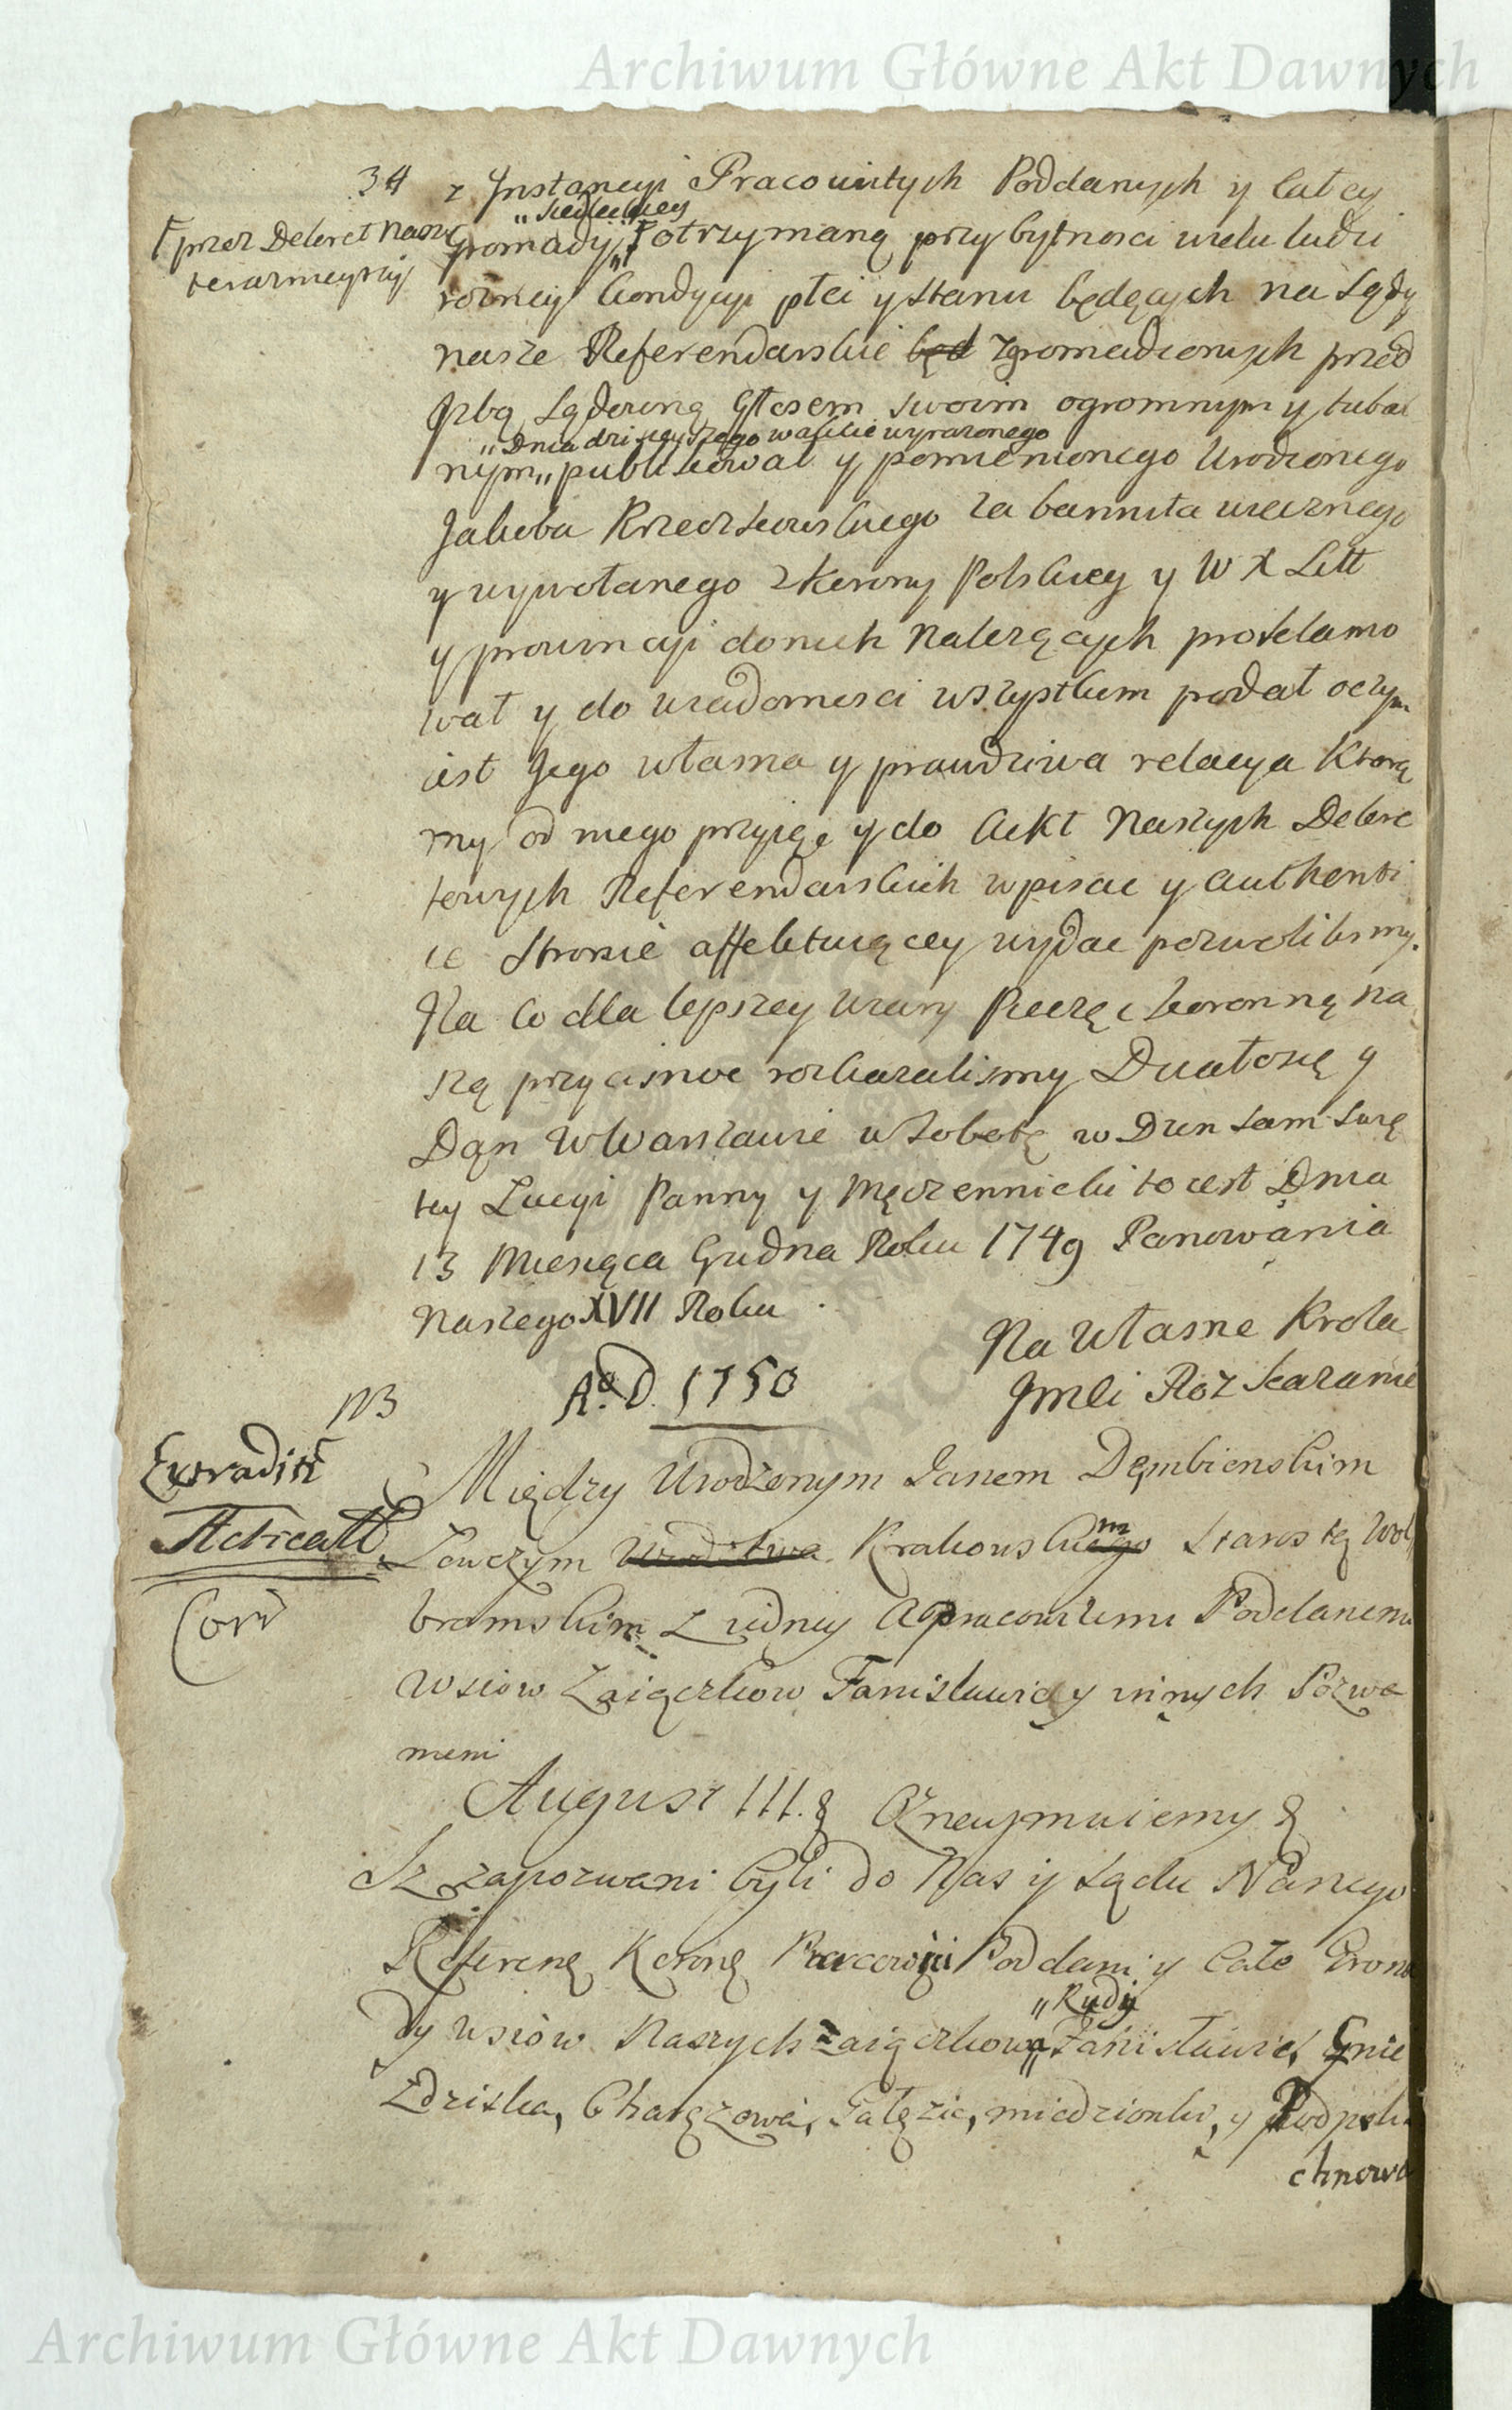 Archiwum Główne Akt Dawnych
34
z Jnstancyi Pracowitych Poddanych y całey
"Siedleckiey
Γ przez Dekret Nasz
teraznieyszy
Gromady„ Γ otrzymaną przy bytnosci wielu ludzi
rożney Kondycyi płci y stanu będących na Sądy
nasze Referendarskie będ zgromadzonych przed
Jzbą Sądową Głosem swoim ogromnym y trbal
„Dnia dzisieyszego w akcie wyrazonego
nym„ publikował y pomienionego Urodzonego
Jakuba Krzeczkowskiego za bannita wiecznego
y wywołanego z Korony Polskiey y W X Litt
y prowincyi do nich Należących proklamo
wał y do wiadomosci wszystkim podał o czym
iest Jego własna y prawdziwa relacya Ktorą
my od niego przyięę y do Aekt Naszych Dekre
towych Referendarskich wpisac y authenti
ce Stronie affektuiącey wydac pozwolilismy.
Na Co dla lepszey Wiary Pieczęc koronną Na
szą przycisnoc rozkazalismy Działosię y
Dan w Warszawie w Sobotę w Dzien Sam Swię
tey Łucyi Panny y Męczennicki to iest Dnia
13 Miesiąca Grudnia Roku 1749 Panowania
Naszego XVII Roku
Na Własne Krola
Jmci Rozkazanie
A.o D. 1750
NB
Extradit
Actreatt
Corr
Między Urodzonym Janem Dębienskim
Łowczym Krakowskiego m Starostą Wol
bramskim z iedney a pracowitemi Poddanemi
Wsiow Zaiączkow Fanisławic y innych Pozwa
nemi
August III. & Oznaymuiemy &
Jz zapozwani byli do Nas y Sądu Naszego
Referenę Koronę Pracowici Poddani y Całe Groma
"Rudy
dy wsiów Naszych Zaiączkowa„ Fanisławic, Gnie
ździska, Charęzowa, Gałęzic, miedzionki, y Podpola
chnowa
Archiwum Główne Akt Dawnych